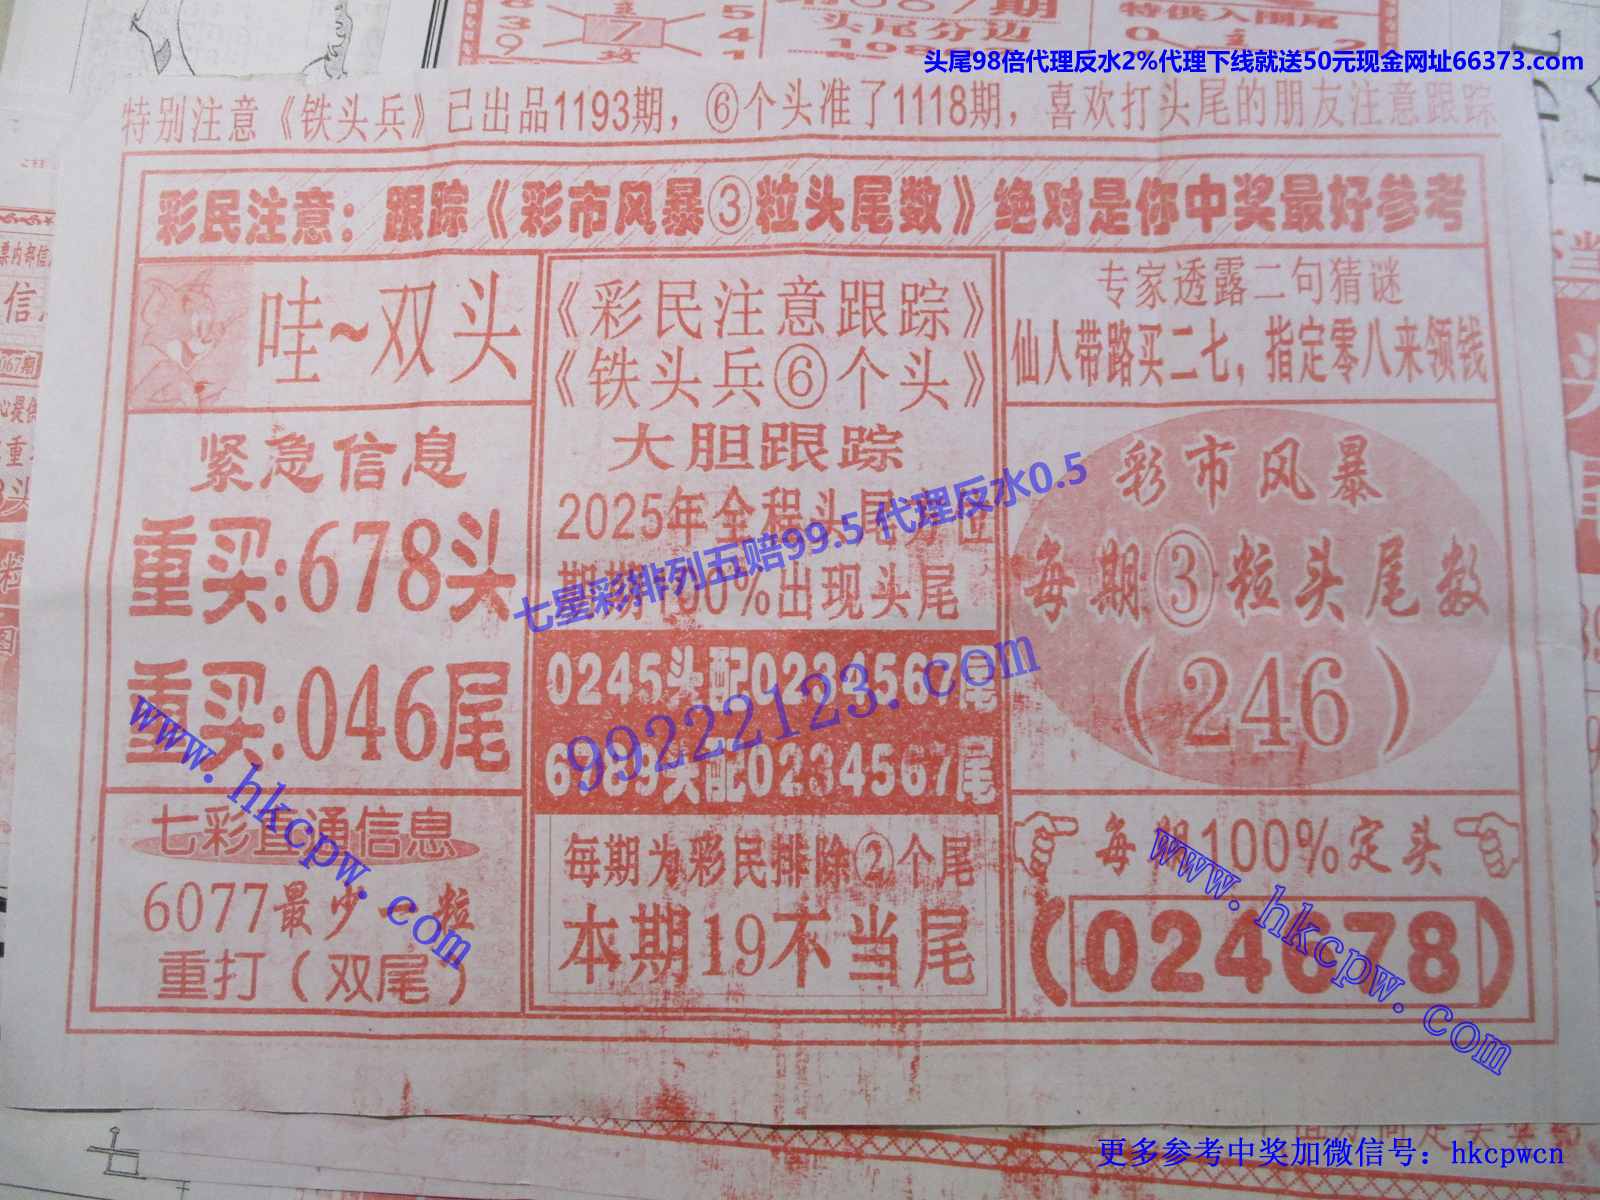 头尾98倍代理反水2%代理下线就送50元现金网址66373.com
特别注意《铁头兵》已出品1193期，⑥个头准了1118期，喜欢打头尾的朋友注意跟踪
彩民注意：跟踪《彩市风暴③粒头尾数》绝对是你中奖最好参考
哇~双头
紧急信息
重买:678头
重买:046尾
七彩直通信息
6077最少一粒
重打（双尾）
《彩民注意跟踪》
《铁头兵⑥个头》
大胆跟踪
2025年全程头尾方位
期期100%出现头尾
0245头配0234567尾
6789头配0234567尾
每期为彩民排除②个尾
本期19不当尾
专家透露二句猜谜
仙人带路买二七，指定零八来领钱
彩市风暴
每期③粒头尾数
（246）
每期100%定头
（024678）
七星彩排列五赔99.5 代理反水0.5
99222123.com
www.hkcpw.com
www.hkcpw.com
更多参考中奖加微信号：hkcpwcn